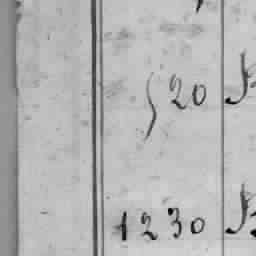 520
1230